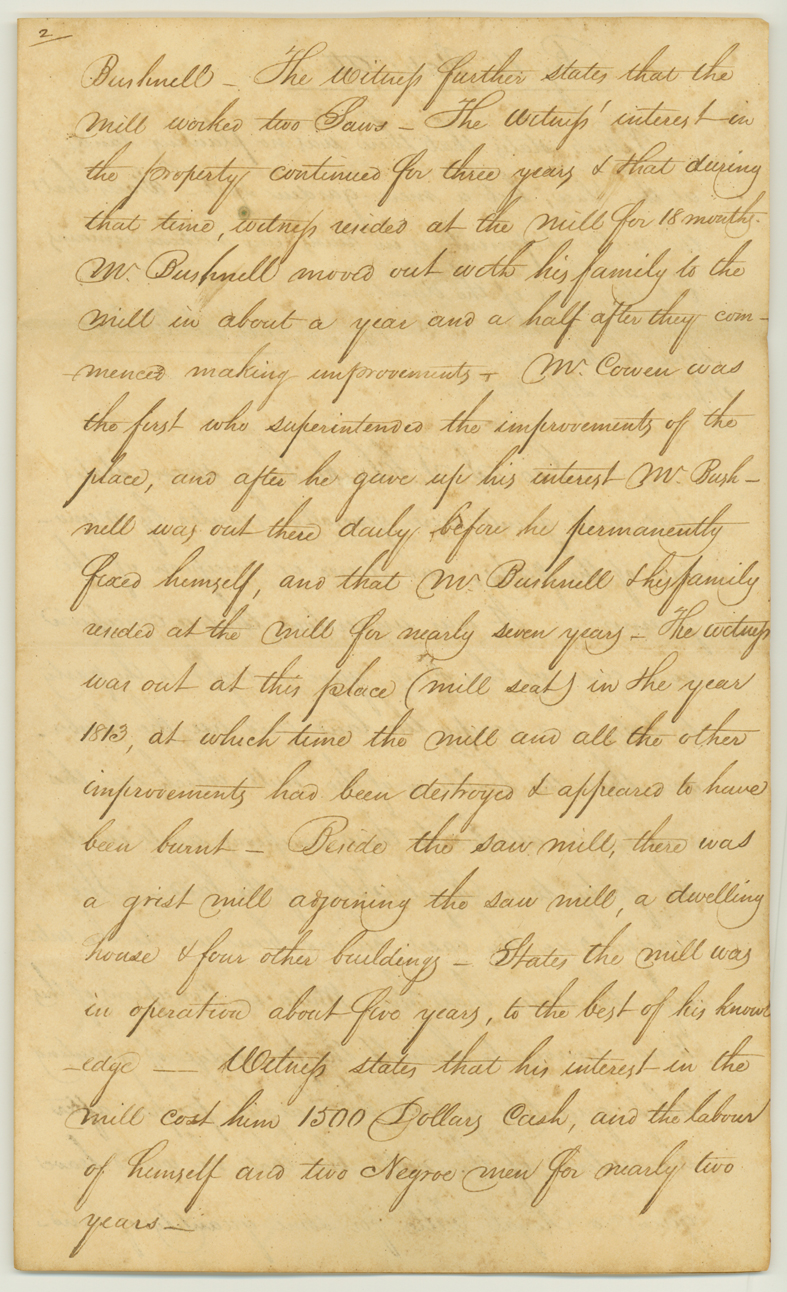 2
Bushnell – The Witness further states that the
mill worked two Saws – The Witness' interest in
the property continued for three years & that during
that time, witness resided at the mill for 18 months.
Mr. Bushnell moved out with his family to the
mill in about a year and a half after they com-
-menced making improvements – Mr. Cowen was
the first who superintended the improvements of the
place, and after he gave up his interest Mr. Bush-
nell was out there daily, before he permanently
fixed himself, and that Mr. Bushnell & his family
resided at the mill for nearly seven years – The witness
was out at this place (mill seat) in the year
1813, at which time the mill and all the other
improvements had been destroyed & appeared to have
been burnt – Beside the saw mill, there was
a grist mill adjoining the saw mill, a dwelling
house & four other buildings – States the mill was
in operation about five years, to the best of his knowl
-edge — Witness states that his interest in the
mill cost him 1500 Dollars Cash, and the labour
of himself and two Negroe men for nearly two
years –